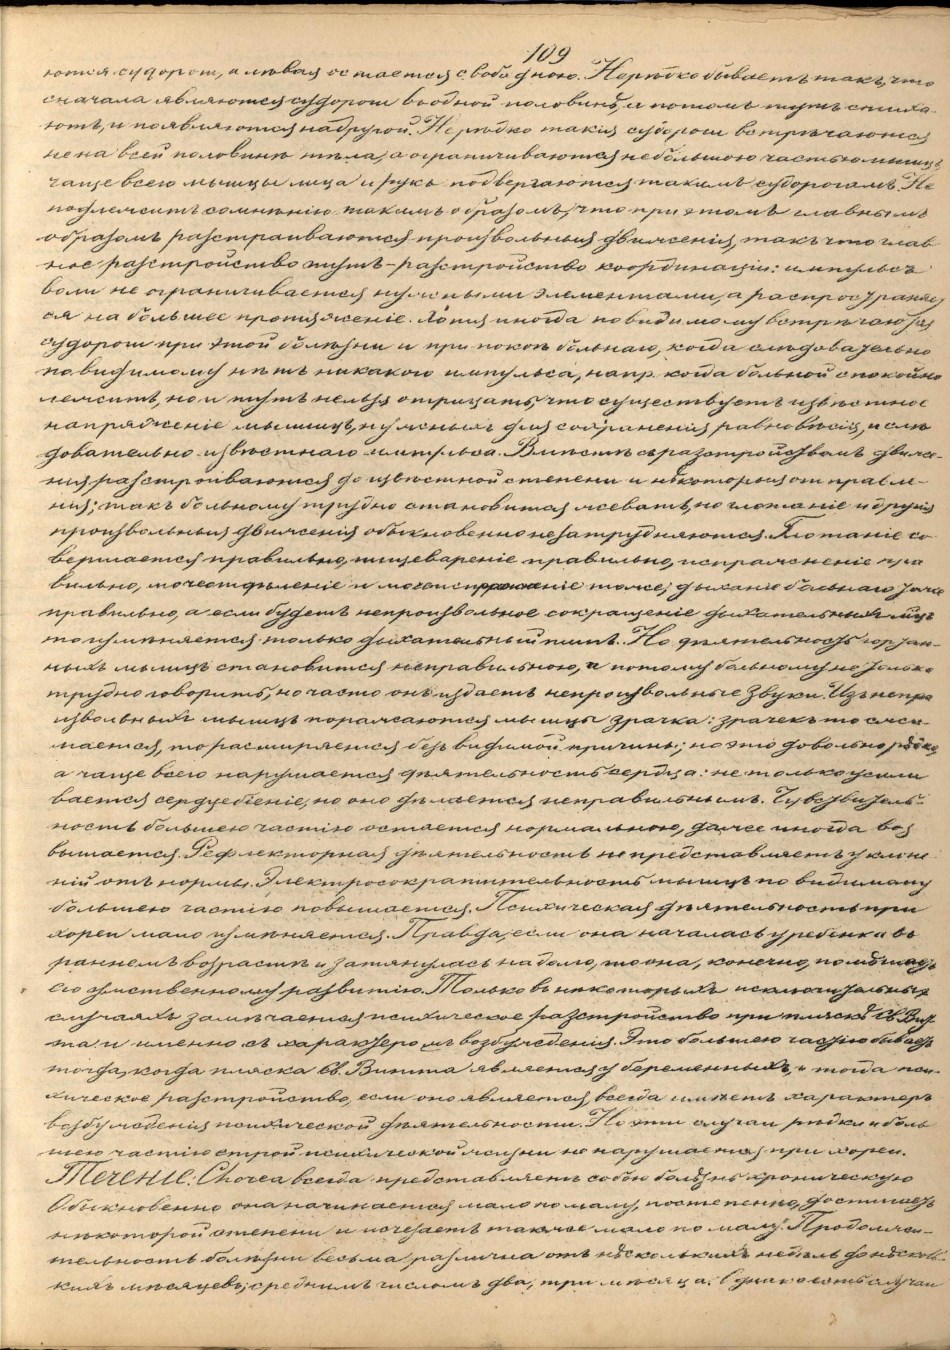 109
ются судороги, а лѣвая остается свободною. Нерѣдко бываетъ такъ, что
сначала являются судороги въ одной половинѣ, а потомъ тутъ стиха-
ютъ, и появляются на другой. Нерѣдко такія судороги встрѣчаются
не на всей половинѣ тѣла, а ограничиваются небольшою частью мышцъ,
чаще всего мышцы лица и рукъ подвергаются такимъ судорогамъ. Не
подлежитъ сомнѣнію такимъ образомъ, что при этомъ главнымъ
образомъ разстраиваются произвольныя движенія, такъ что глав
ное разстройство тутъ – разстройство координаціи: импульсъ
воли не ограничивается нужными элементами, а распространяет
ся на большее протяженіе. Хотя иногда повидимому встрѣчаются
судороги при этой болѣзни и при покоѣ больнаго, когда слѣдовательно
повидимому нѣтъ никакого импульса, напр. когда больной спокойно
лежитъ, но и тутъ нельзя отрицать, что существуетъ извѣстное
напряженіе мышцъ, нужныхъ для сохраненія равновѣсія, и слѣ
довательно извѣстнаго импульса. Вмѣстѣ съ разстройствомъ движе-
нія, разстроиваются до извѣстной степени и нѣкоторыя отправле-
нія; такъ больному трудно становится жевать, но глотаніе и другія
произвольныя движенія обыкновенно не затрудняются. Глотаніе со
вершается правильно, пищевареніе правильно, испражненіе пра
вильно, мочеотдѣленіе и мочеиспражненіе тоже; дыханіе больнаго тоже
правильно, а если будетъ непроизвольное сокращеніе дыхательныхъ мцъ
то измѣняется только дыхательный типъ. Но дѣятельность гортан-
ныхъ мышцъ становится неправильною, и потому больному не только
трудно говорить, но часто онъ издаетъ непроизвольные звуки. Изъ непро
извольныхъ мышцъ поражаются мышцы зрачка: зрачекъ то сжи-
мается, то расширяется безъ видимой причины; но это довольно рѣдко,
а чаще всего нарушается дѣятельность сердца: не только усили
вается сердцебіеніе, но оно дѣлается неправильнымъ. Чувствитель-
ность большею частію остается нормальною, далее иногда воз
вышается. Рефлекторная дѣятельность не представляетъ уклоне
ній отъ нормы. Электросократительность мышцъ по видимому
большею частію повышается. Психическая дѣятельность при
хореи мало измѣняется. Правда, если она началась у ребенка въ
раннемъ возрастѣ и затянулась надолго, то она, конечно, помѣшаетъ
его умственному развитію. Только въ нѣкоторыхъ исключительныхъ
случаяхъ замѣчается психическое разстройство при пляскѣ Св. Вит-
та и именно съ характеромъ возбужденія. Это большею частію бываетъ
тогда, когда пляска Св. Витта является у беременныхъ, и тогда пси-
хическое разстройство, если оно является, всегда имѣетъ характеръ
возбужденія психической дѣятельности. Но эти случаи рѣдки и боль
шею частію строй психической жизни не нарушается при хореи.
Теченіе: Chorea всегда представляетъ собою болѣзнь хроническую
Обыкновенно она начинается мало по малу, постепенно, достигаетъ
нѣкоторой степени и исчезаетъ также мало по малу. Продолжи-
тельность болѣзни весьма различна отъ нѣсколькихъ недѣль до нѣсколь-
кихъ мѣсяцевъ; среднимъ числомъ два, три мѣсяца. Однако есть случаи